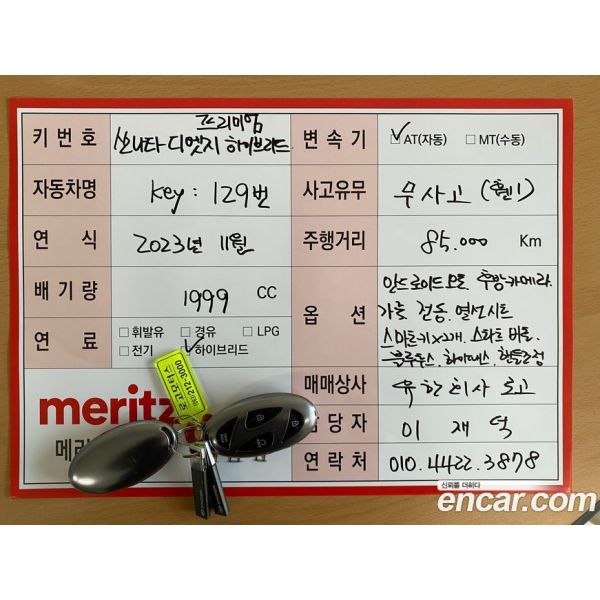 키번호 프리미엄
쏘나타 디엣지 하이브리드
변속기 AT(자동) MT(수동)
자동차명 key : 129번
사고유무 무사고 (휀1)
연 식 2023년 11월
주행거리 85.000 Km
배기량 1999 CC
연 료 휘발유 경유 LPG
전기 하이브리드
옵 션 안드로이드 오토. 후방카메라.
가죽 전동. 열선시트
스마트키x2개. 스마트
블루투스. 하이패스. 핸들
meritz
메리
매매상사 유한회사 로고
당 자 이 재 덕
연 락 처 010.4422.3878
로고모터스
212-3000
신뢰를 더하다
encar.com